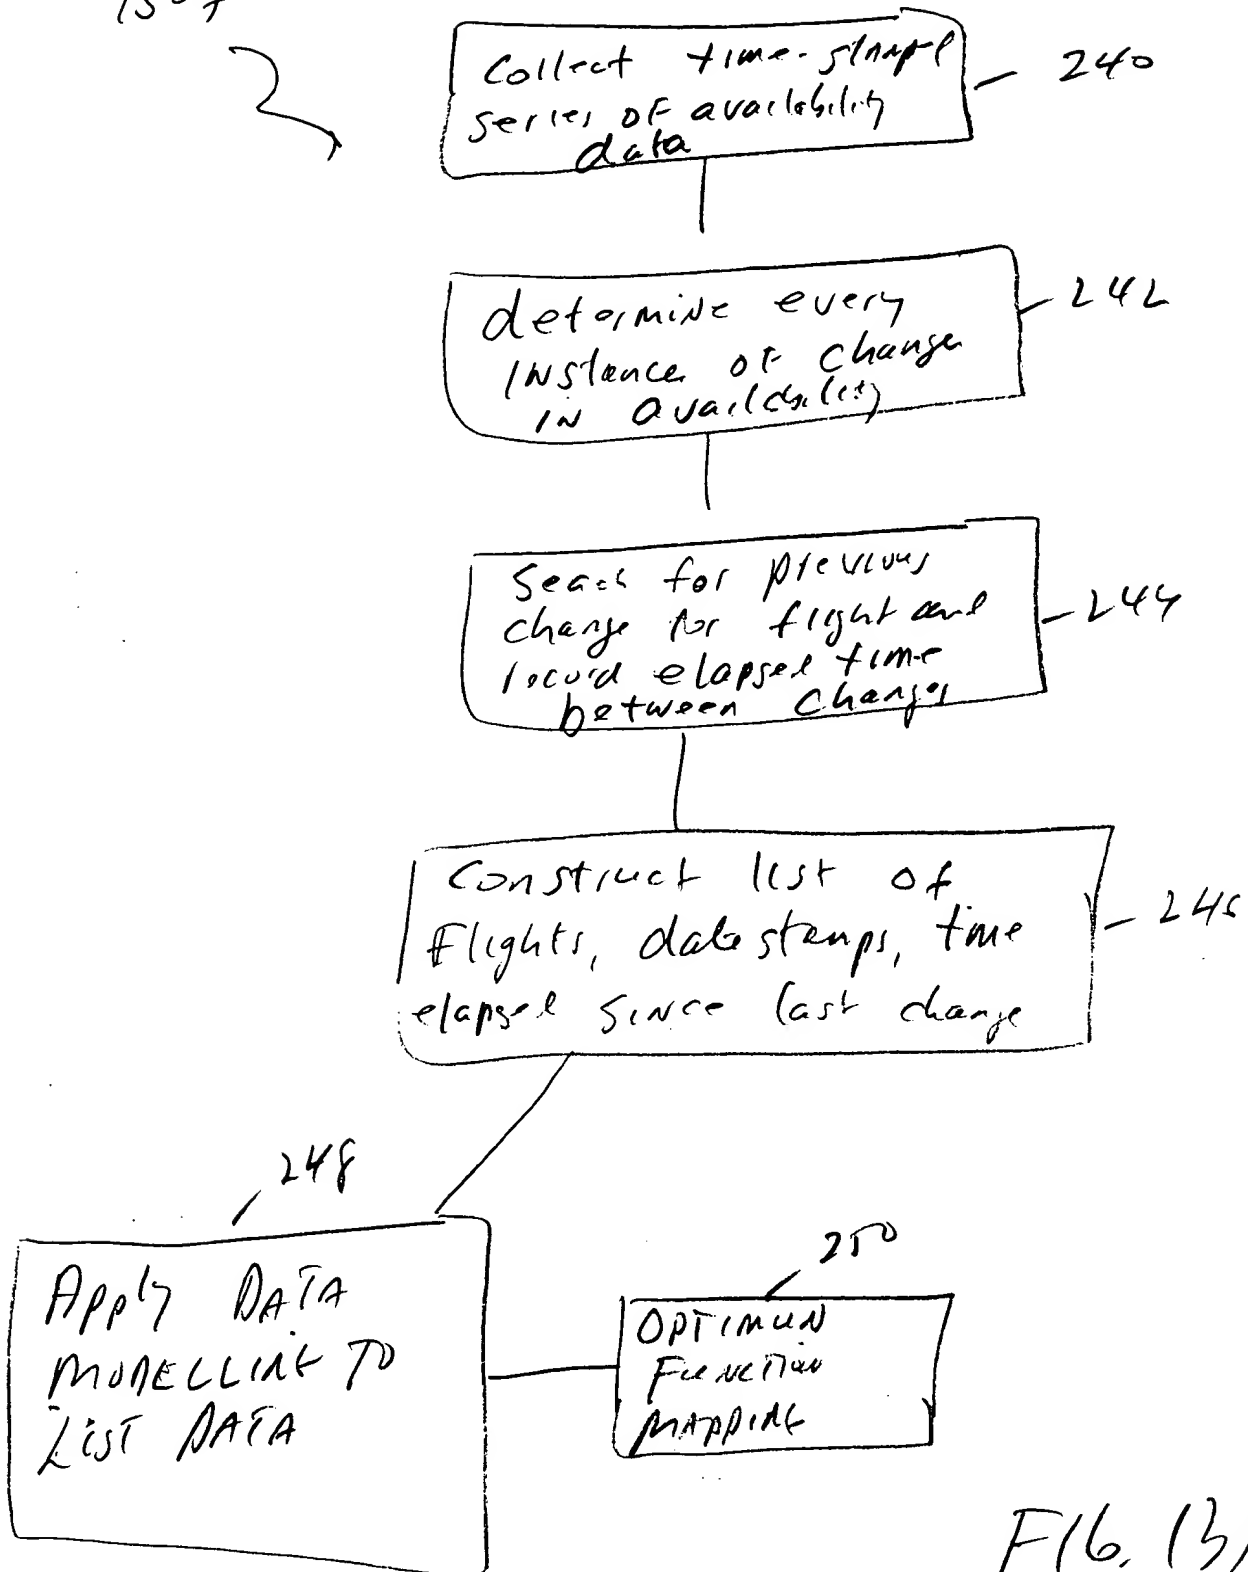 Collect time-stampel
series of availability
data
240
determine every
instance of change
in availability
242
Seach for previous
change for flight and
record elapsel time
between changes
244
Construct list of
Flights, date stamps, time
elapsel since last change
246
248
Apply DATA
MODELLING TO
LIST DATA
250
OPTIMUN
Function
MAPPING
FIG. 13A